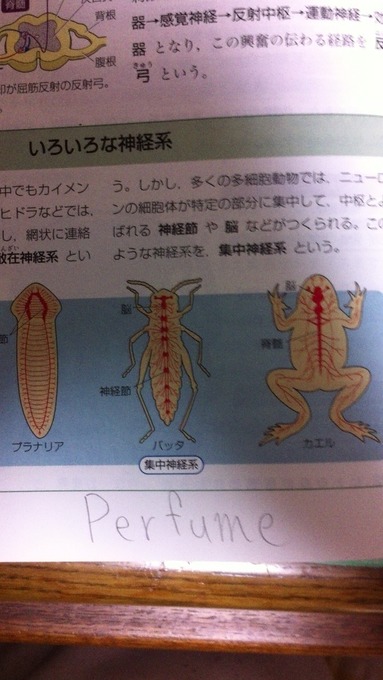 脊髄
背根
腹根
器→感覚神経→反射中枢→運動神経→
器 となり、この興奮の伝わる経路を 反
弓 という。
きゅう
印が屈筋反射の反射弓。
いろいろな神経系
中でもカイメン
ヒドラなどでは,
し, 網状に連絡
散在神経系 とい
う。しかし, 多くの多細胞動物では, ニューロ
ンの細胞体が特定の部分に集中して, 中枢とよ
ばれる 神経節 や 脳 などがつくられる。この
ような神経系を, 集中神経系 という。
節
プラナリア
脳
神経節
バッタ
脳
脊髄
カエル
集中神経系
Perfume